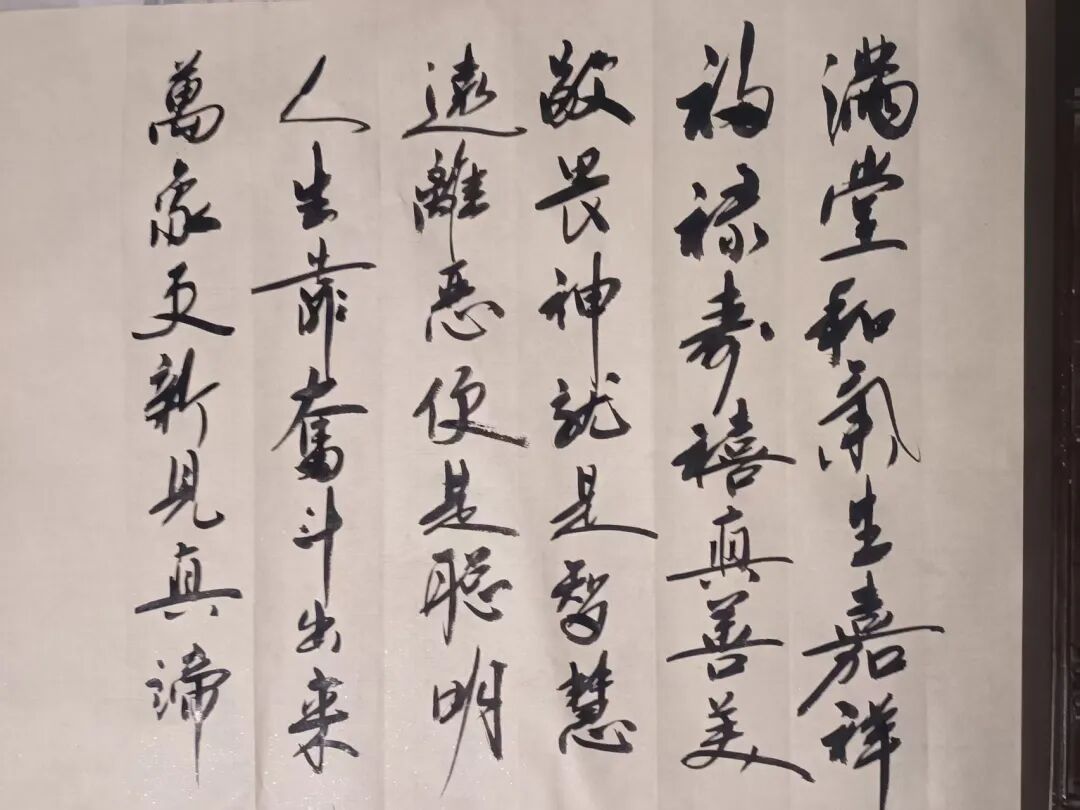 满堂和氣生嘉祥
福禄寿禧真善美
敬畏神就是智慧
遠離恶便是聪明
人生靠奮斗出来
萬象更新見真谛